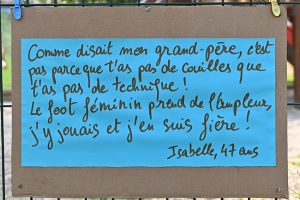 Comme disait mon grand-père, c'est
pas parce que t'as pas de couilles que
t'as pas de technique !
Le foot féminin prend de l'ampleur,
j'y jouais et j'en suis fière !
Isabelle, 47 ans